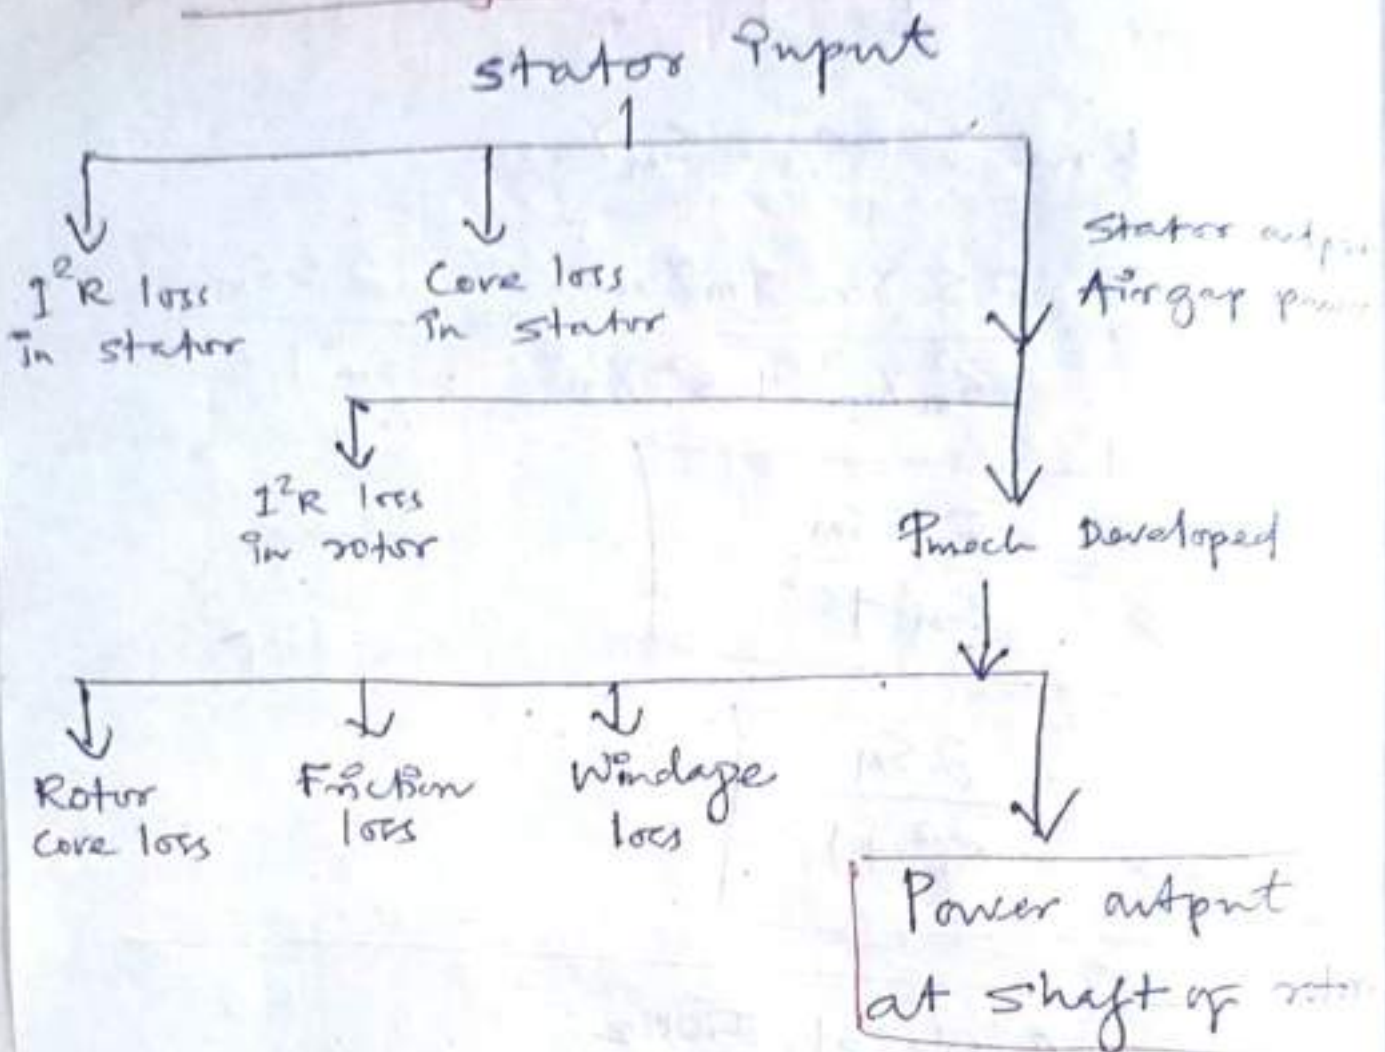 stator input
I²R loss
in stator
Core loss
in stator
Stator
Airgap
I²R loss
in rotor
Pmech Developed
Rotor
core loss
Friction
loss
Windage
loss
Power output
at shaft of rotor